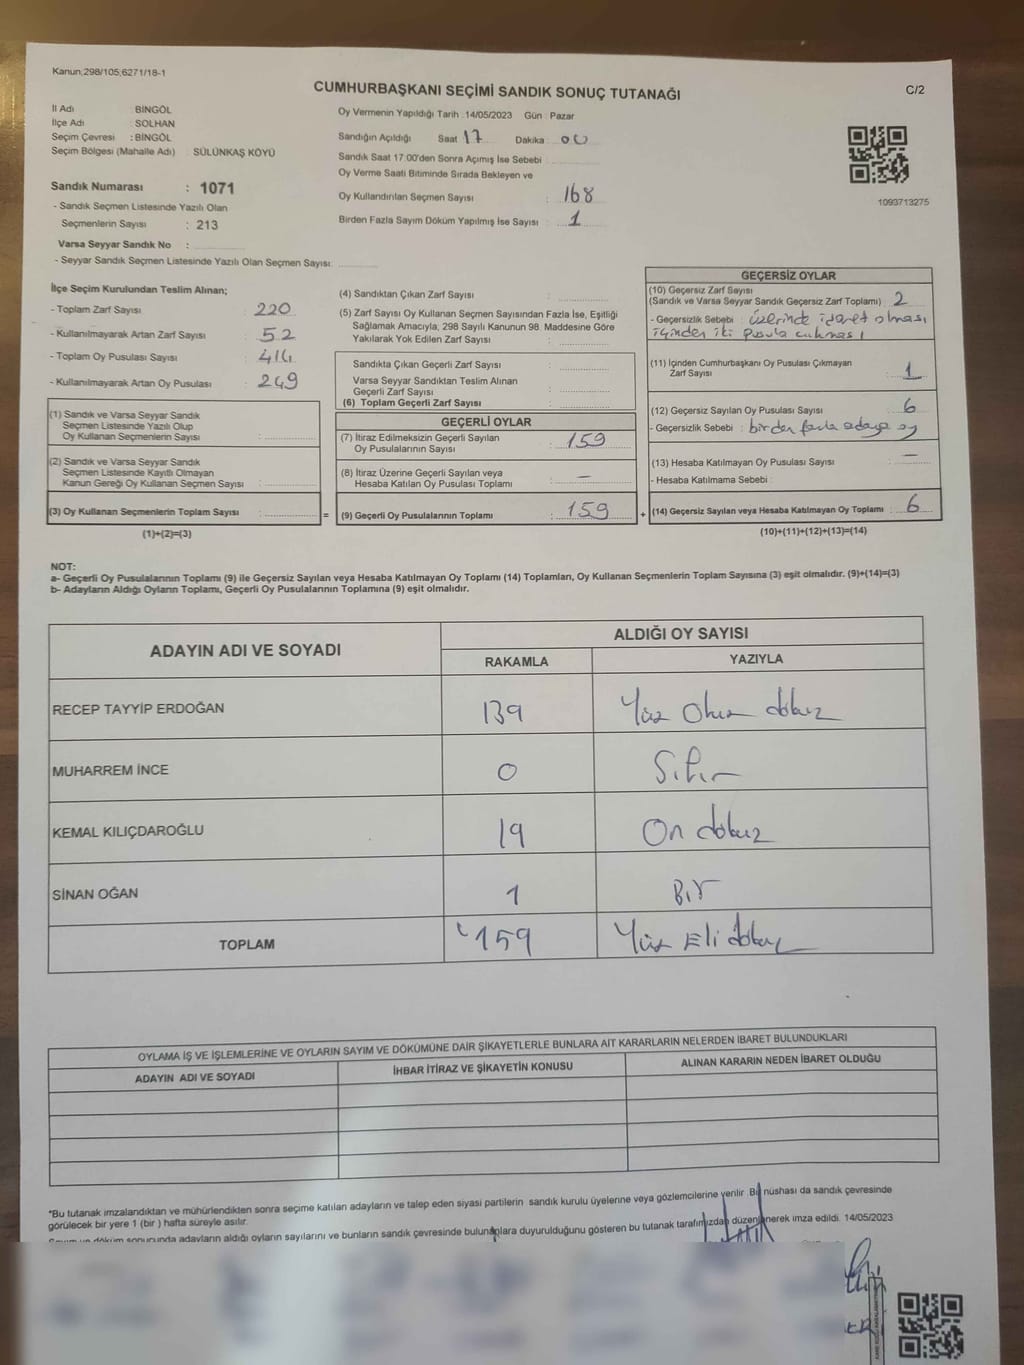 Kanun,298/105;6271/18-1
CUMHURBAŞKANI SEÇİMİ SANDIK SONUÇ TUTANAĞI
C/2
İl Adı : BİNGÖL
İlçe Adı : SOLHAN
Seçim Çevresi : BİNGÖL
Seçim Bölgesi (Mahalle Adı) : SÜLÜNKAŞ KÖYÜ
Sandık Numarası : 1071
- Sandık Seçmen Listesinde Yazılı Olan
Seçmenlerin Sayısı : 213
Varsa Seyyar Sandık No :
- Seyyar Sandık Seçmen Listesinde Yazılı Olan Seçmen Sayısı:
Oy Vermenin Yapıldığı Tarih :14/05/2023 Gün : Pazar
Sandığın Açıldığı Saat 17 Dakika : 00
Sandık Saat 17:00'den Sonra Açımış İse Sebebi :
Oy Verme Saati Bitiminde Sırada Bekleyen ve
Oy Kullandırılan Seçmen Sayısı : 168
Birden Fazla Sayım Döküm Yapılmış İse Sayısı : 1
1093713275
İlçe Seçim Kurulundan Teslim Alınan;
- Toplam Zarf Sayısı : 220
- Kullanılmayarak Artan Zarf Sayısı : 52
- Toplam Oy Pusulası Sayısı : 414
- Kullanılmayarak Artan Oy Pusulası : 249
(1) Sandık ve Varsa Seyyar Sandık
Seçmen Listesinde Yazılı Olup
Oy Kullanan Seçmenlerin Sayısı :
(2) Sandık ve Varsa Seyyar Sandık
Seçmen Listesinde Kayıtlı Olmayan
Kanun Gereği Oy Kullanan Seçmen Sayısı :
(3) Oy Kullanan Seçmenlerin Toplam Sayısı : =
(1)+(2)=(3)
(4) Sandıktan Çıkan Zarf Sayısı :
(5) Zarf Sayısı Oy Kullanan Seçmen Sayısından Fazla İse, Eşitliği
Sağlamak Amacıyla, 298 Sayılı Kanunun 98. Maddesine Göre
Yakılarak Yok Edilen Zarf Sayısı :
Sandıkta Çıkan Geçerli Zarf Sayısı :
Varsa Seyyar Sandıktan Teslim Alınan
Geçerli Zarf Sayısı :
(6) Toplam Geçerli Zarf Sayısı :
GEÇERLİ OYLAR
(7) İtiraz Edilmeksizin Geçerli Sayılan
Oy Pusulalarının Sayısı : 159
(8) İtiraz Üzerine Geçerli Sayılan veya
Hesaba Katılan Oy Pusulası Toplamı : –
(9) Geçerli Oy Pusulalarının Toplamı : 159 +
GEÇERSİZ OYLAR
(10) Geçersiz Zarf Sayısı
(Sandık ve Varsa Seyyar Sandık Geçersiz Zarf Toplamı) : 2
- Geçersizlik Sebebi : üzerinde işaret olması
içinden iki pusula çıkması
(11) İçinden Cumhurbaşkanı Oy Pusulası Çıkmayan
Zarf Sayısı : 1
(12) Geçersiz Sayılan Oy Pusulası Sayısı : 6
- Geçersizlik Sebebi : birden fazla adaya oy
(13) Hesaba Katılmayan Oy Pusulası Sayısı : –
- Hesaba Katılmama Sebebi :
(14) Geçersiz Sayılan veya Hesaba Katılmayan Oy Toplamı : 6
(10)+(11)+(12)+(13)=(14)
NOT:
a- Geçerli Oy Pusulalarının Toplamı (9) ile Geçersiz Sayılan veya Hesaba Katılmayan Oy Toplamı (14) Toplamları, Oy Kullanan Seçmenlerin Toplam Sayısına (3) eşit olmalıdır. (9)+(14)=(3)
b- Adayların Aldığı Oyların Toplamı, Geçerli Oy Pusulalarının Toplamına (9) eşit olmalıdır.
ADAYIN ADI VE SOYADI
ALDIĞI OY SAYISI
RAKAMLA YAZIYLA
RECEP TAYYİP ERDOĞAN 139 Yüz Otuz dokuz
MUHARREM İNCE 0 Sıfır
KEMAL KILIÇDAROĞLU 19 On dokuz
SİNAN OĞAN 1 Bir
TOPLAM 159 Yüz Eli dokuz
OYLAMA İŞ VE İŞLEMLERİNE VE OYLARIN SAYIM VE DÖKÜMÜNE DAİR ŞİKAYETLERLE BUNLARA AİT KARARLARIN NELERDEN İBARET BULUNDUKLARI
ADAYIN ADI VE SOYADI İHBAR İTİRAZ VE ŞİKAYETİN KONUSU ALINAN KARARIN NEDEN İBARET OLDUĞU
*Bu tutanak imzalandıktan ve mühürlendikten sonra seçime katılan adayların ve talep eden siyasi partilerin sandık kurulu üyelerine veya gözlemcilerine verilir. Bir nüshası da sandık çevresinde
görülecek bir yere 1 (bir ) hafta süreyle asılır.
Sayım ve döküm sonucunda adayların aldığı oyların sayılarını ve bunların sandık çevresinde bulunanlara duyurulduğunu gösteren bu tutanak tarafımızdan düzenlenerek imza edildi. 14/05/2023